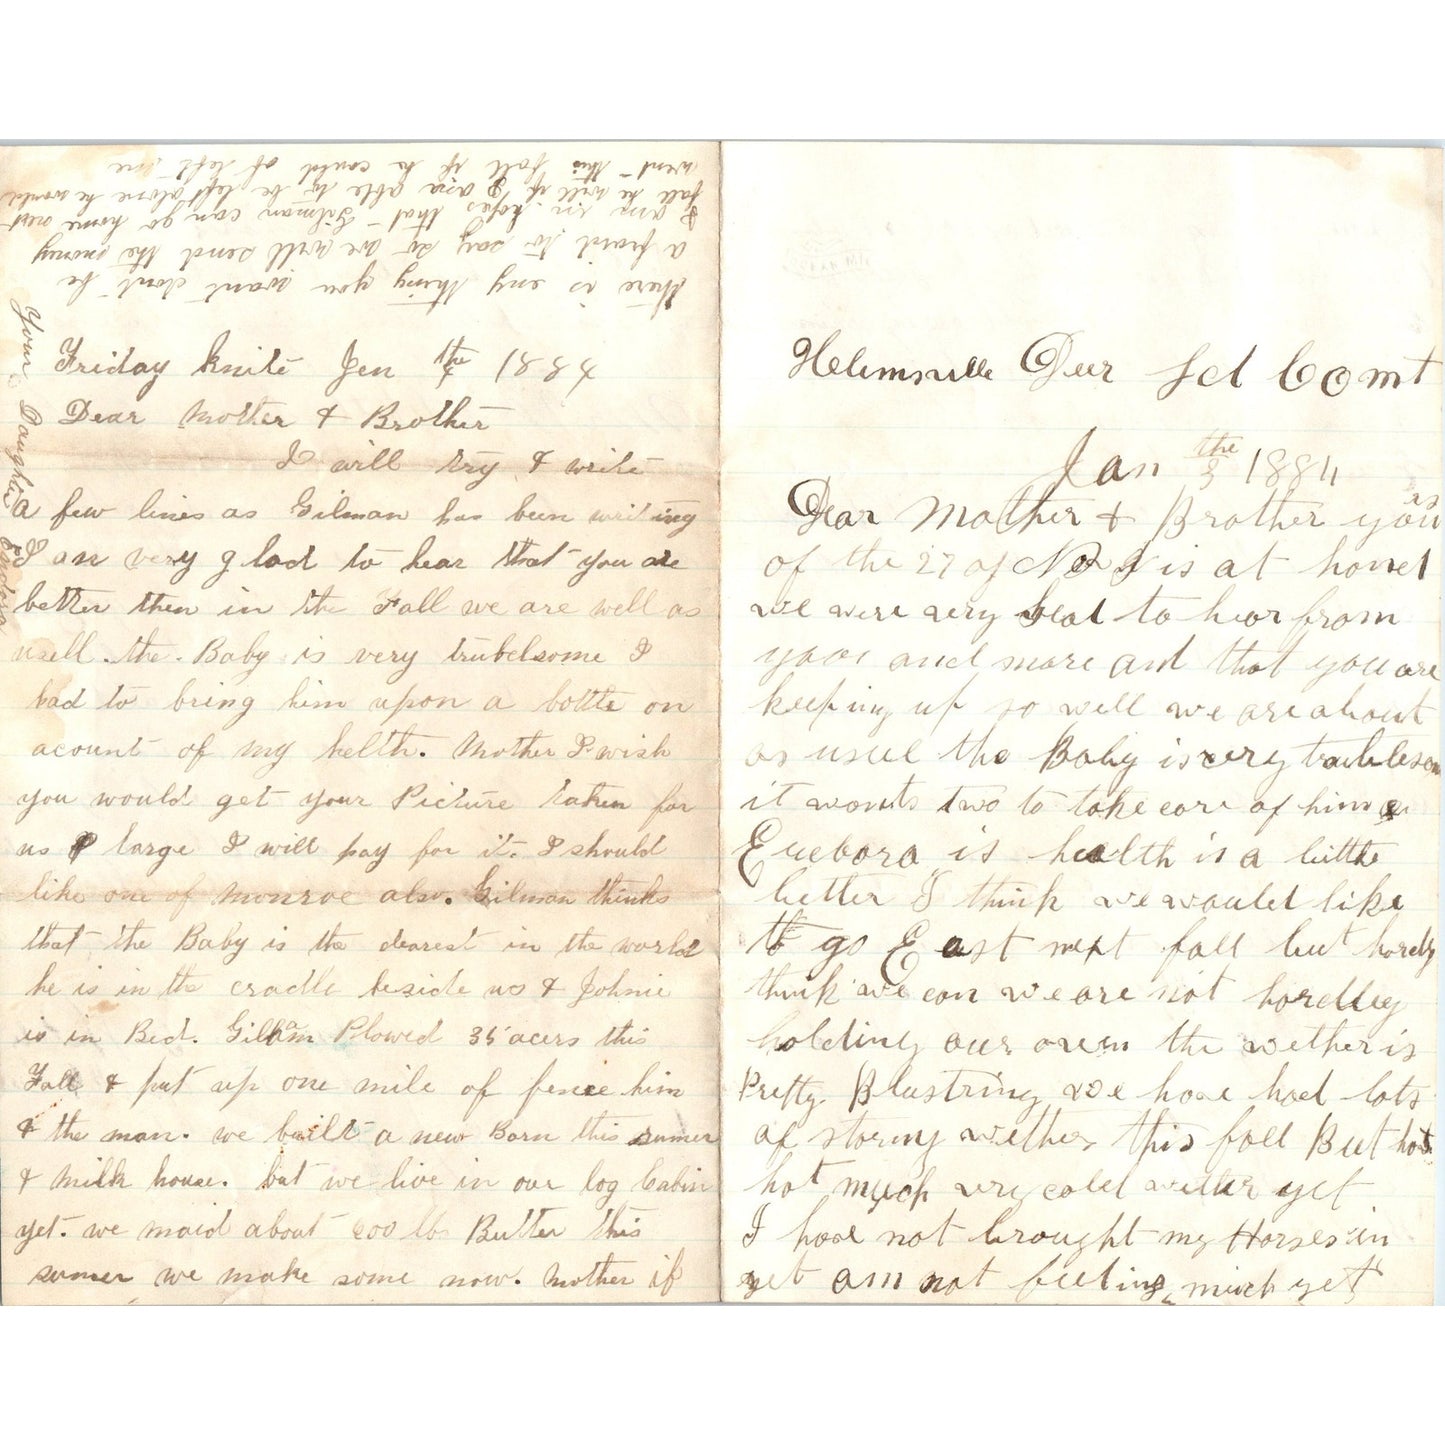 Friday knite Jen 4 the 1884
Dear Mother & Brother
I will try & write
a few lines as Gilman has been writing
I am very glad to hear that you are
better then in the Fall we are well as
usell. the Baby is very trubelsome I
had to bring him upon a bottle on
acount of my helth. Mother I wish
you would get your Picture taken for
us large I will pay for it. I should
like one of Monroe also. Gilman thinks
that the Baby is the dearest in the world
he is in the cradle beside us & Johnie
is in Bed. Gilman Plowed 35 acers this
Fall & put up one mile of fence him
& the man. we built a new Barn this sumer
& milk house. but we live in our log Cabin
yet. we maid about 200 lb Butter this
sumer we make some now. Mother if
there is eny thing you want dont be
a fraid to say so we will send the money
I am in hopes that Gilman can go home next
fall he will if I am able to be left alone he would
went this fall if he could of left me
Your Daughter
Helmsville Deer Ld Co mt
Jan the 3 1884
Dear Mother & Brother yours
of the 27 of Nov is at hand
we were very glad to hear from
you and more and that you are
keeping up so well we are about
as usul the Baby is very trubleson
it wonts two to take care of him
is health is a little
better I think we would like
to go East next fall but hardly
think we can we are not hardley
holding our own the wether is
Pretty Blustring we have had lots
of stormy wether this fall But hot
hot much very cold wether yet
I have not brought my Horses in
yet am not feeding much yet